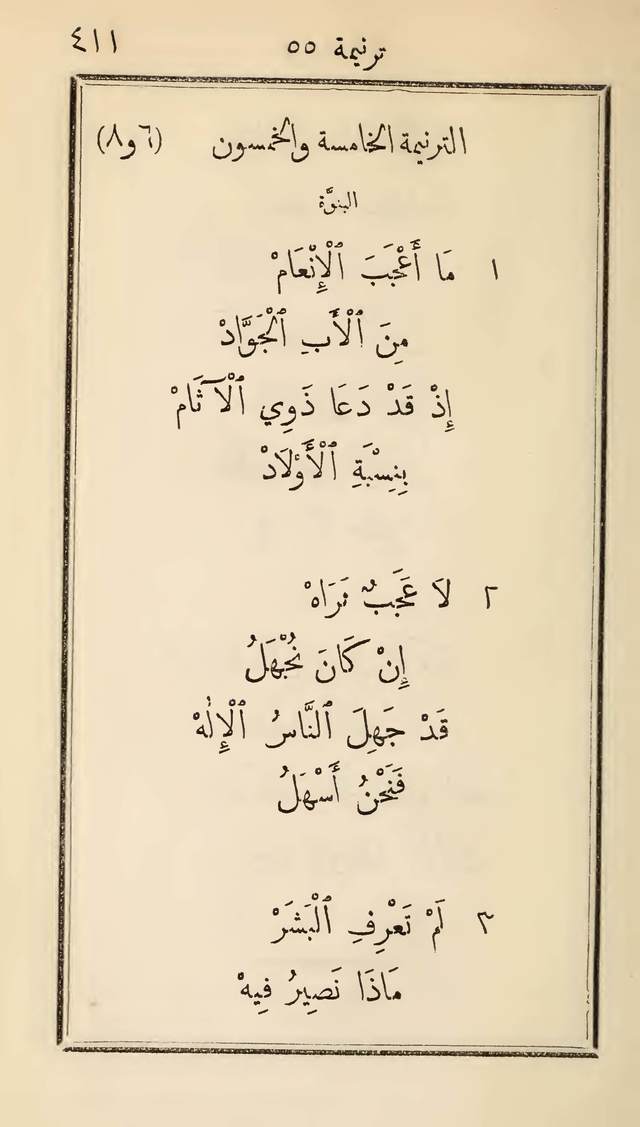 ترنيمة ٥٥ ٤١١
الترنيمة الخامسة والخمسون (٦ و٨)
البنوَّة
١ مَا أَعْجَبَ ٱلْإِنْعَامْ
مِنَ ٱلْأَبِ ٱلْجَوَّادْ
إِذْ قَدْ دَعَا ذَوِي ٱلْآثَامْ
بِنِسْبَةِ ٱلْأَوْلَادْ
٢ لَا عَجَبٌ نَرَاهْ
إِنْ كَانَ نُجْهَلُ
قَدْ جَهِلَ ٱلنَّاسُ ٱلْإِلٰهْ
فَنَحْنُ أَسْهَلُ
٣ لَمْ تَعْرِفِ ٱلْبَشَرْ
مَاذَا نَصِيرُ فِيهْ